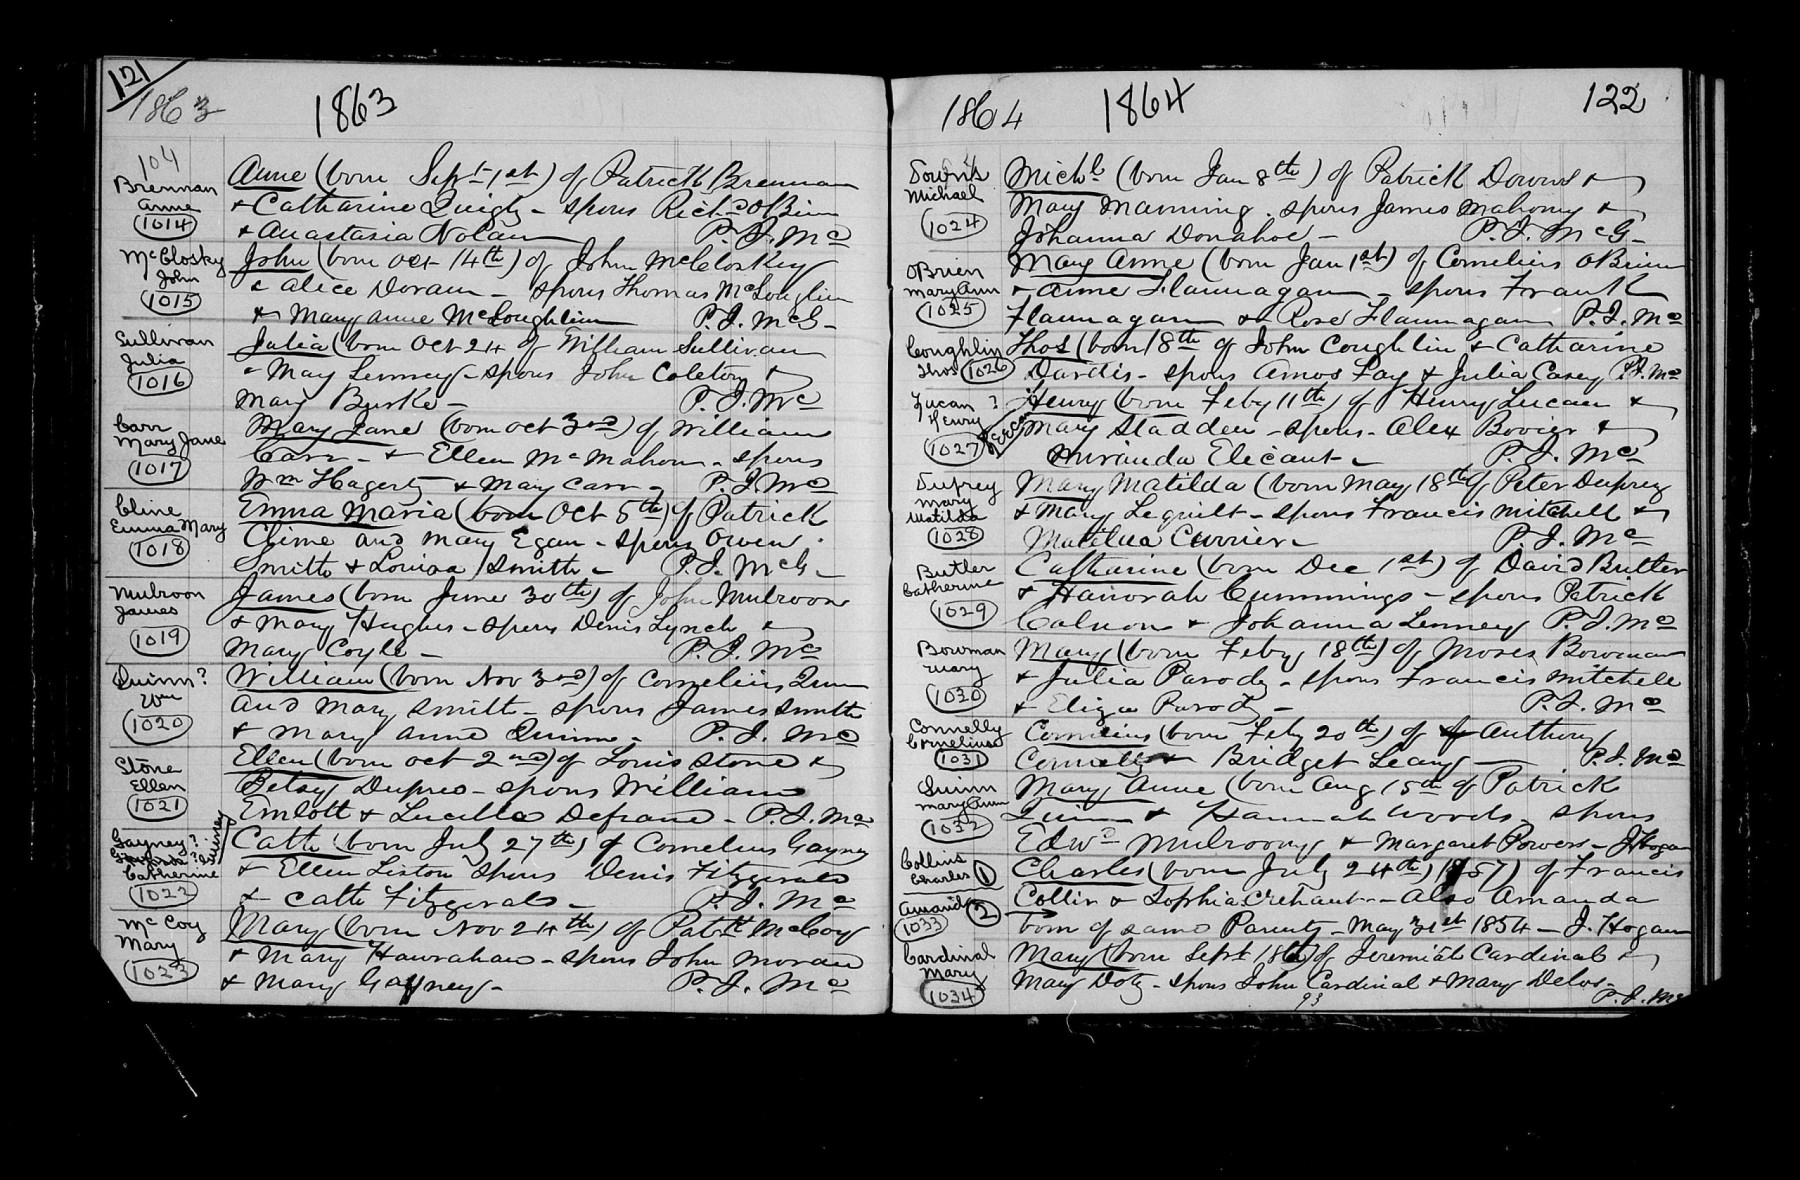 121
1863
1863
104
Brennan
Anne
1014
Anne (born Sept 1st) of Patrick Brennan
& Catharine Quigly - spons Richd OBrien
& Anastasia Nolan P. J. Mc
McClosky
John
1015
John (born Oct 14th) of John McCloskey
& Alice Doran - spons Thomas McLoughlin
& Mary Anne McLoughlin P. J. McG-
Sullivan
Julia
1016
Julia (born Oct 24 of William Sullivan
& May Lenney - spons John Coleton &
Mary Burke - P. J. Mc
Carr
Mary Jane
1017
Mary Jane (born Oct 3rd) of William
Carr - & Ellen McMahon - spons
Wm Hagerty & Mary Carr - P. J. Mc
Cline
Emma Mary
1018
Emma Maria (born Oct 5th) of Patrick
Cline and Mary Egan - spons Owen
Smith & Louisa Smith - P. J. McG-
Mulroon
James
1019
James (born June 30th) of John Mulroon
& Mary Hughes - spons Denis Lynch &
Mary Coyle - P. J. Mc
Quinn?
Wm
1020
William (born Nov 3rd) of Cornelius Quin
and Mary Smith - spons James Smith
& Mary Anne Quinn - P. J. Mc
Stone
Ellen
1021
Ellen (born Oct 2nd) of Louis Stone &
Betsy Dupres - spons William
Emlott & Lucella Defrane - P. J. Mc
Gayney?
Catherine
1022
Cathe (born July 27th) of Cornelius Gayney
& Ellen Liston spons Denis Fitzgerald
& Cath Fitzgerald - P. J. Mc
McCoy
Mary
1023
Mary (born Nov 24th) of Patk McCoy
& Mary Hanrahan - spons John Moran
& Mary Gayney - P. J. Mc
1864
1864
122
Downs
Michael
1024
Michl (born Jan 8th) of Patrick Downs &
Mary Manning - spons James Mahony &
Johanna Donahoe - P. J. McG-
OBrien
Mary Ann
1025
Mary Anne (born Jan 1st) of Cornelius OBrien
& Anne Flannagan - spons Frank
Flannagan & Rose Flannagan P. J. Mc
Coughlin
Thos
1026
Thos (born 18th of John Coughlin & Catharine
Dardis - spons Amos Fay & Julia Casey P. J. Mc
Lucan?
Henry
1027
Henry (born Feby 11th) of Henry Lucan &
Mary Stadden - spons - Alex Bovier &
Miranda Elecant - P. J. Mc
Duprey
Mary
Matilda
1028
Mary Matilda (born May 18th of Peter Duprey
& Mary Lequilt - spons Francis Mitchell &
Matilda Currier - P. J. Mc
Butler
Catherine
1029
Catharine (born Dec 1st) of David Butler
& Hanorah Cummings - spons Patrick
Calnon & Johanna Lenney P. J. Mc
Bowman
Mary
1030
Mary (born Feby 18th) of Moses Bowman
& Julia Parody - spons Francis Mitchell
& Eliza Parody - P. J. Mc
Connelly
Cornelius
1031
Cornelius (born Feby 20th) of Anthony
Connelly & Bridget Leary - P. J. Mc
Quinn
Mary Ann
1032
Mary Anne (born Aug 15th of Patrick
Quinn & Hannah Woods - spons
Edwd Mulroony & Margaret Powers - J Hogan
Collins
Charles 1
Charles (born July 24th) 1857) of Francis
Amanda 2
1033
Collin & Sophia - Also Amanda
born of same Parents - May 31st 1854 - J. Hogan
Cardinal
Mary
1034
Mary (born Sept 18th) of Jeremiah Cardinal &
Mary Doty - spons John Cardinal & Mary Delos -
P. J. Mc
93